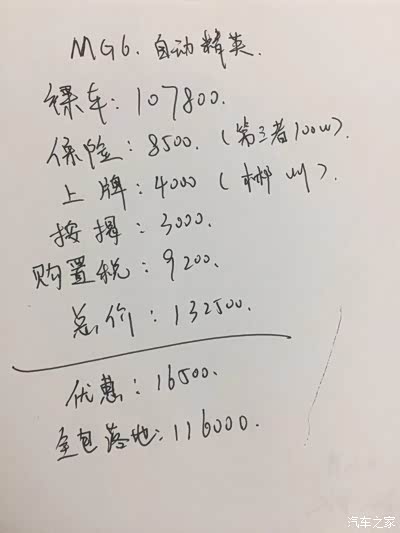 MG6. 自动精英.
裸车: 107800.
保险: 8500. (第三者100W).
上牌: 4000 (郴州).
按揭: 3000.
购置税: 9200.
总价: 132500.
优惠: 16500.
全包落地: 116000.
汽车之家